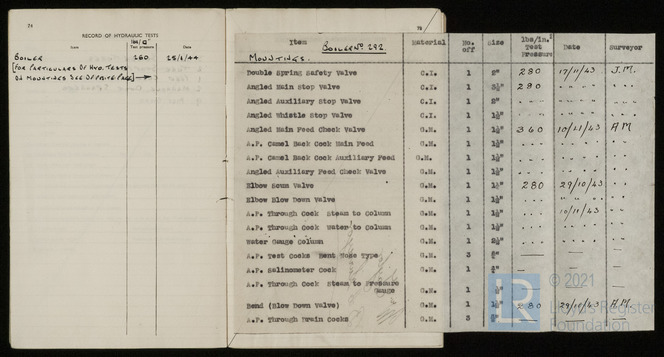 74
RECORD OF HYDRAULIC TESTS
Item lbs/□" Test pressure Date
BOILER 260 25/1/44
[FOR PARTICULARS OF HYD. TESTS
ON MOUNTINGS SEE OPPOSITE PAGE]
Item BOILER Nº 292. Material No. off Size lbs/in.² Test Pressure Date Surveyor
MOUNTINGS.
Double Spring Safety Valve C.I. 1 2" 280 17/11/43 J.M.
Angled Main Stop Valve C.I. 1 3½" 280
Angled Auxiliary Stop Valve C.I. 1 2"
Angled Whistle Stop Valve C.I. 1 1½"
Angled Main Feed Check Valve G.M. 1 1½" 360 10/11/43 A.M
A.P. Camel Back Cock Main Feed G.M. 1 1½"
A.P. Camel Back Cock Auxiliary Feed G.M. 1 1½"
Angled Auxiliary Feed Check Valve G.M. 1 1½"
Elbow Scum Valve G.M. 1 1½" 280 29/10/43
Elbow Blow Down Valve G.M. 1 1½"
A.P. Through Cock Steam to Column G.M. 1 10/11/43
A.P. Through Cock Water to Column G.M. 1
Water Gauge Column G.M. 1
A.P. Test Cocks Bent Nose Type G.M. 3
A.P. Salinometer Cock G.M. 1
A.P. Through Cock Steam to Pressure
Gauge G.M. 1
Bend (Blow Down Valve) G.M. 1 1½" 280 29/10/43 A.M.
A.P. Through Drain Cocks G.M. 3
© 2021
Lloyd's Register
Foundation
LR